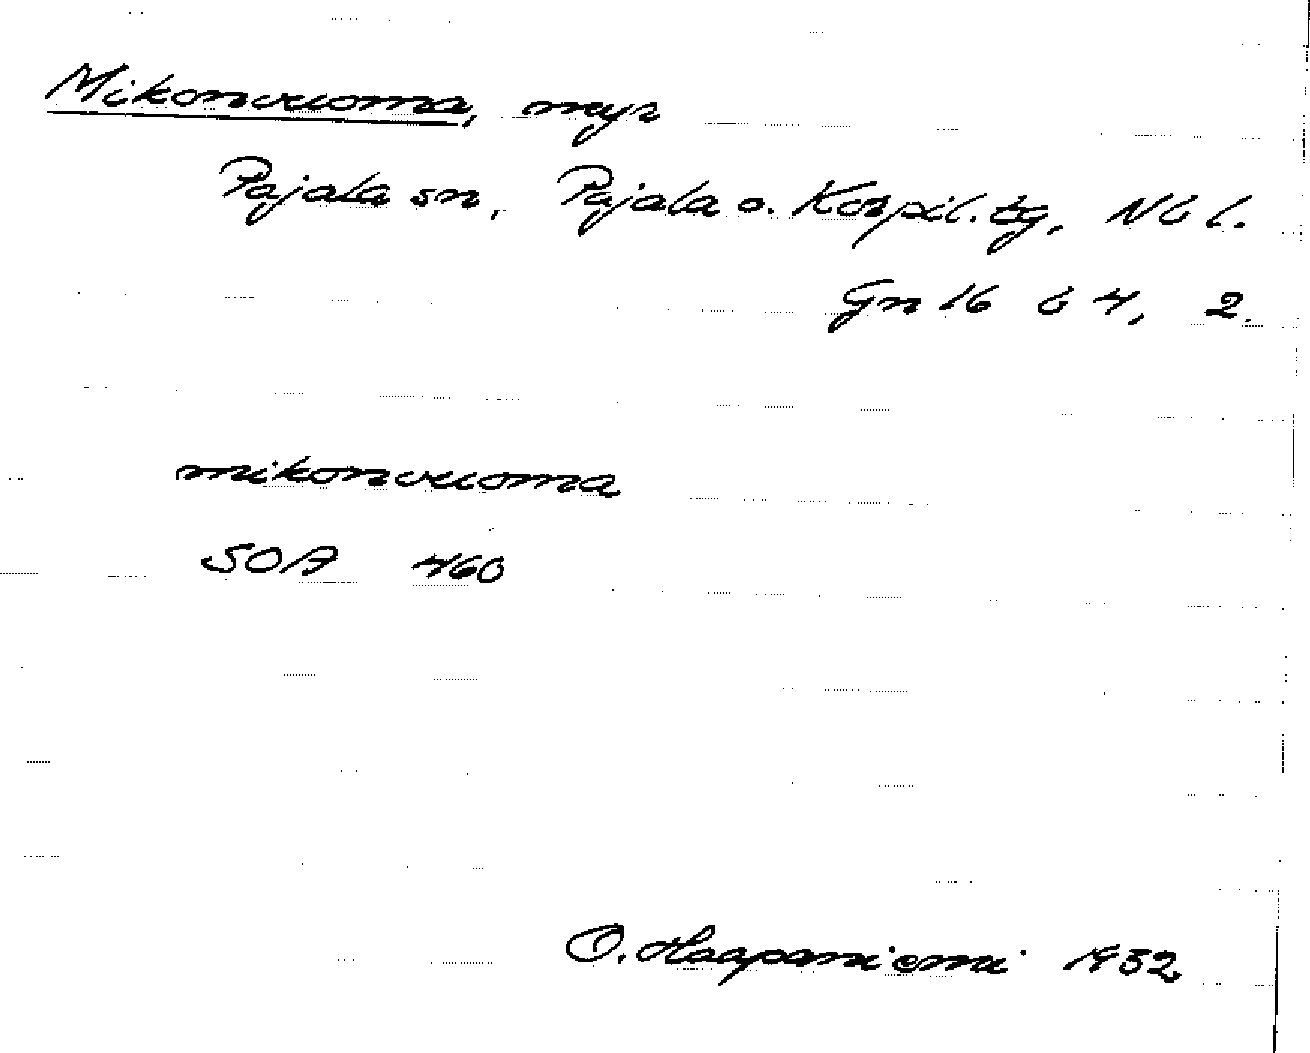 Mikonvuoma, myr
Pajala sn, Pajala o. Korpil. tg, Nb l.
Gn 16 b 4, 2.
mikonvuoma
SOA 460
O. Haapaniemi 1952